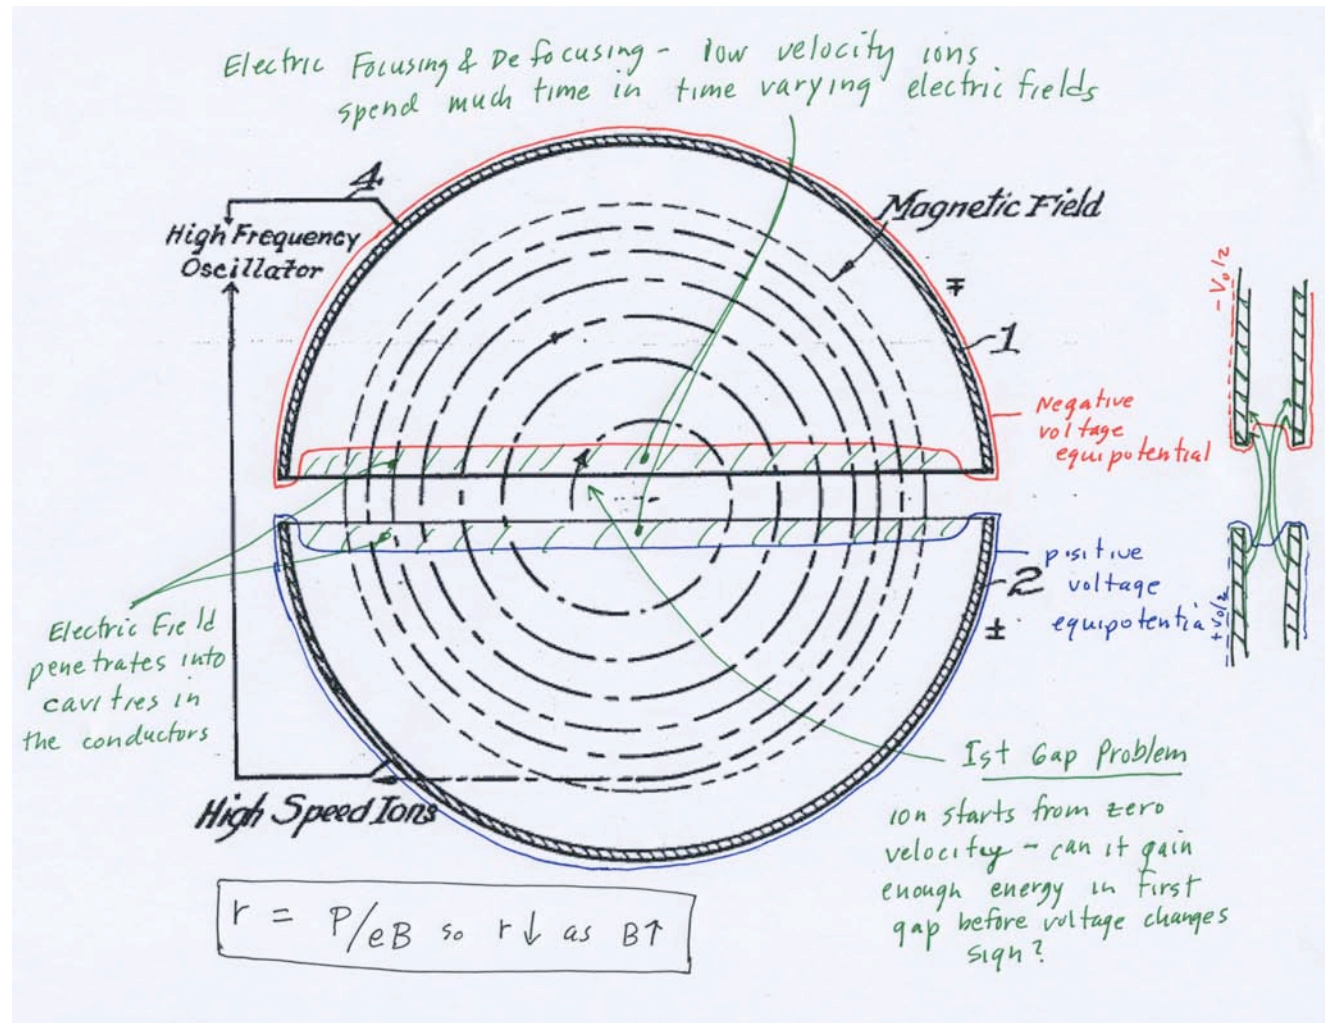 Electric Focusing & Defocusing - low velocity ions
spend much time in time varying electric fields
4
High Frequency
Oscillator
Magnetic Field
∓
1
- V₀/2
Negative
voltage
equipotential
positive
2 voltage
± equipotential
+V₀/2
Electric Field
penetrates into
cavities in
the conductors
High Speed Ions
1st Gap Problem
ion starts from zero
velocity - can it gain
enough energy in first
gap before voltage changes
sign?
r = P/eB so r↓ as B↑